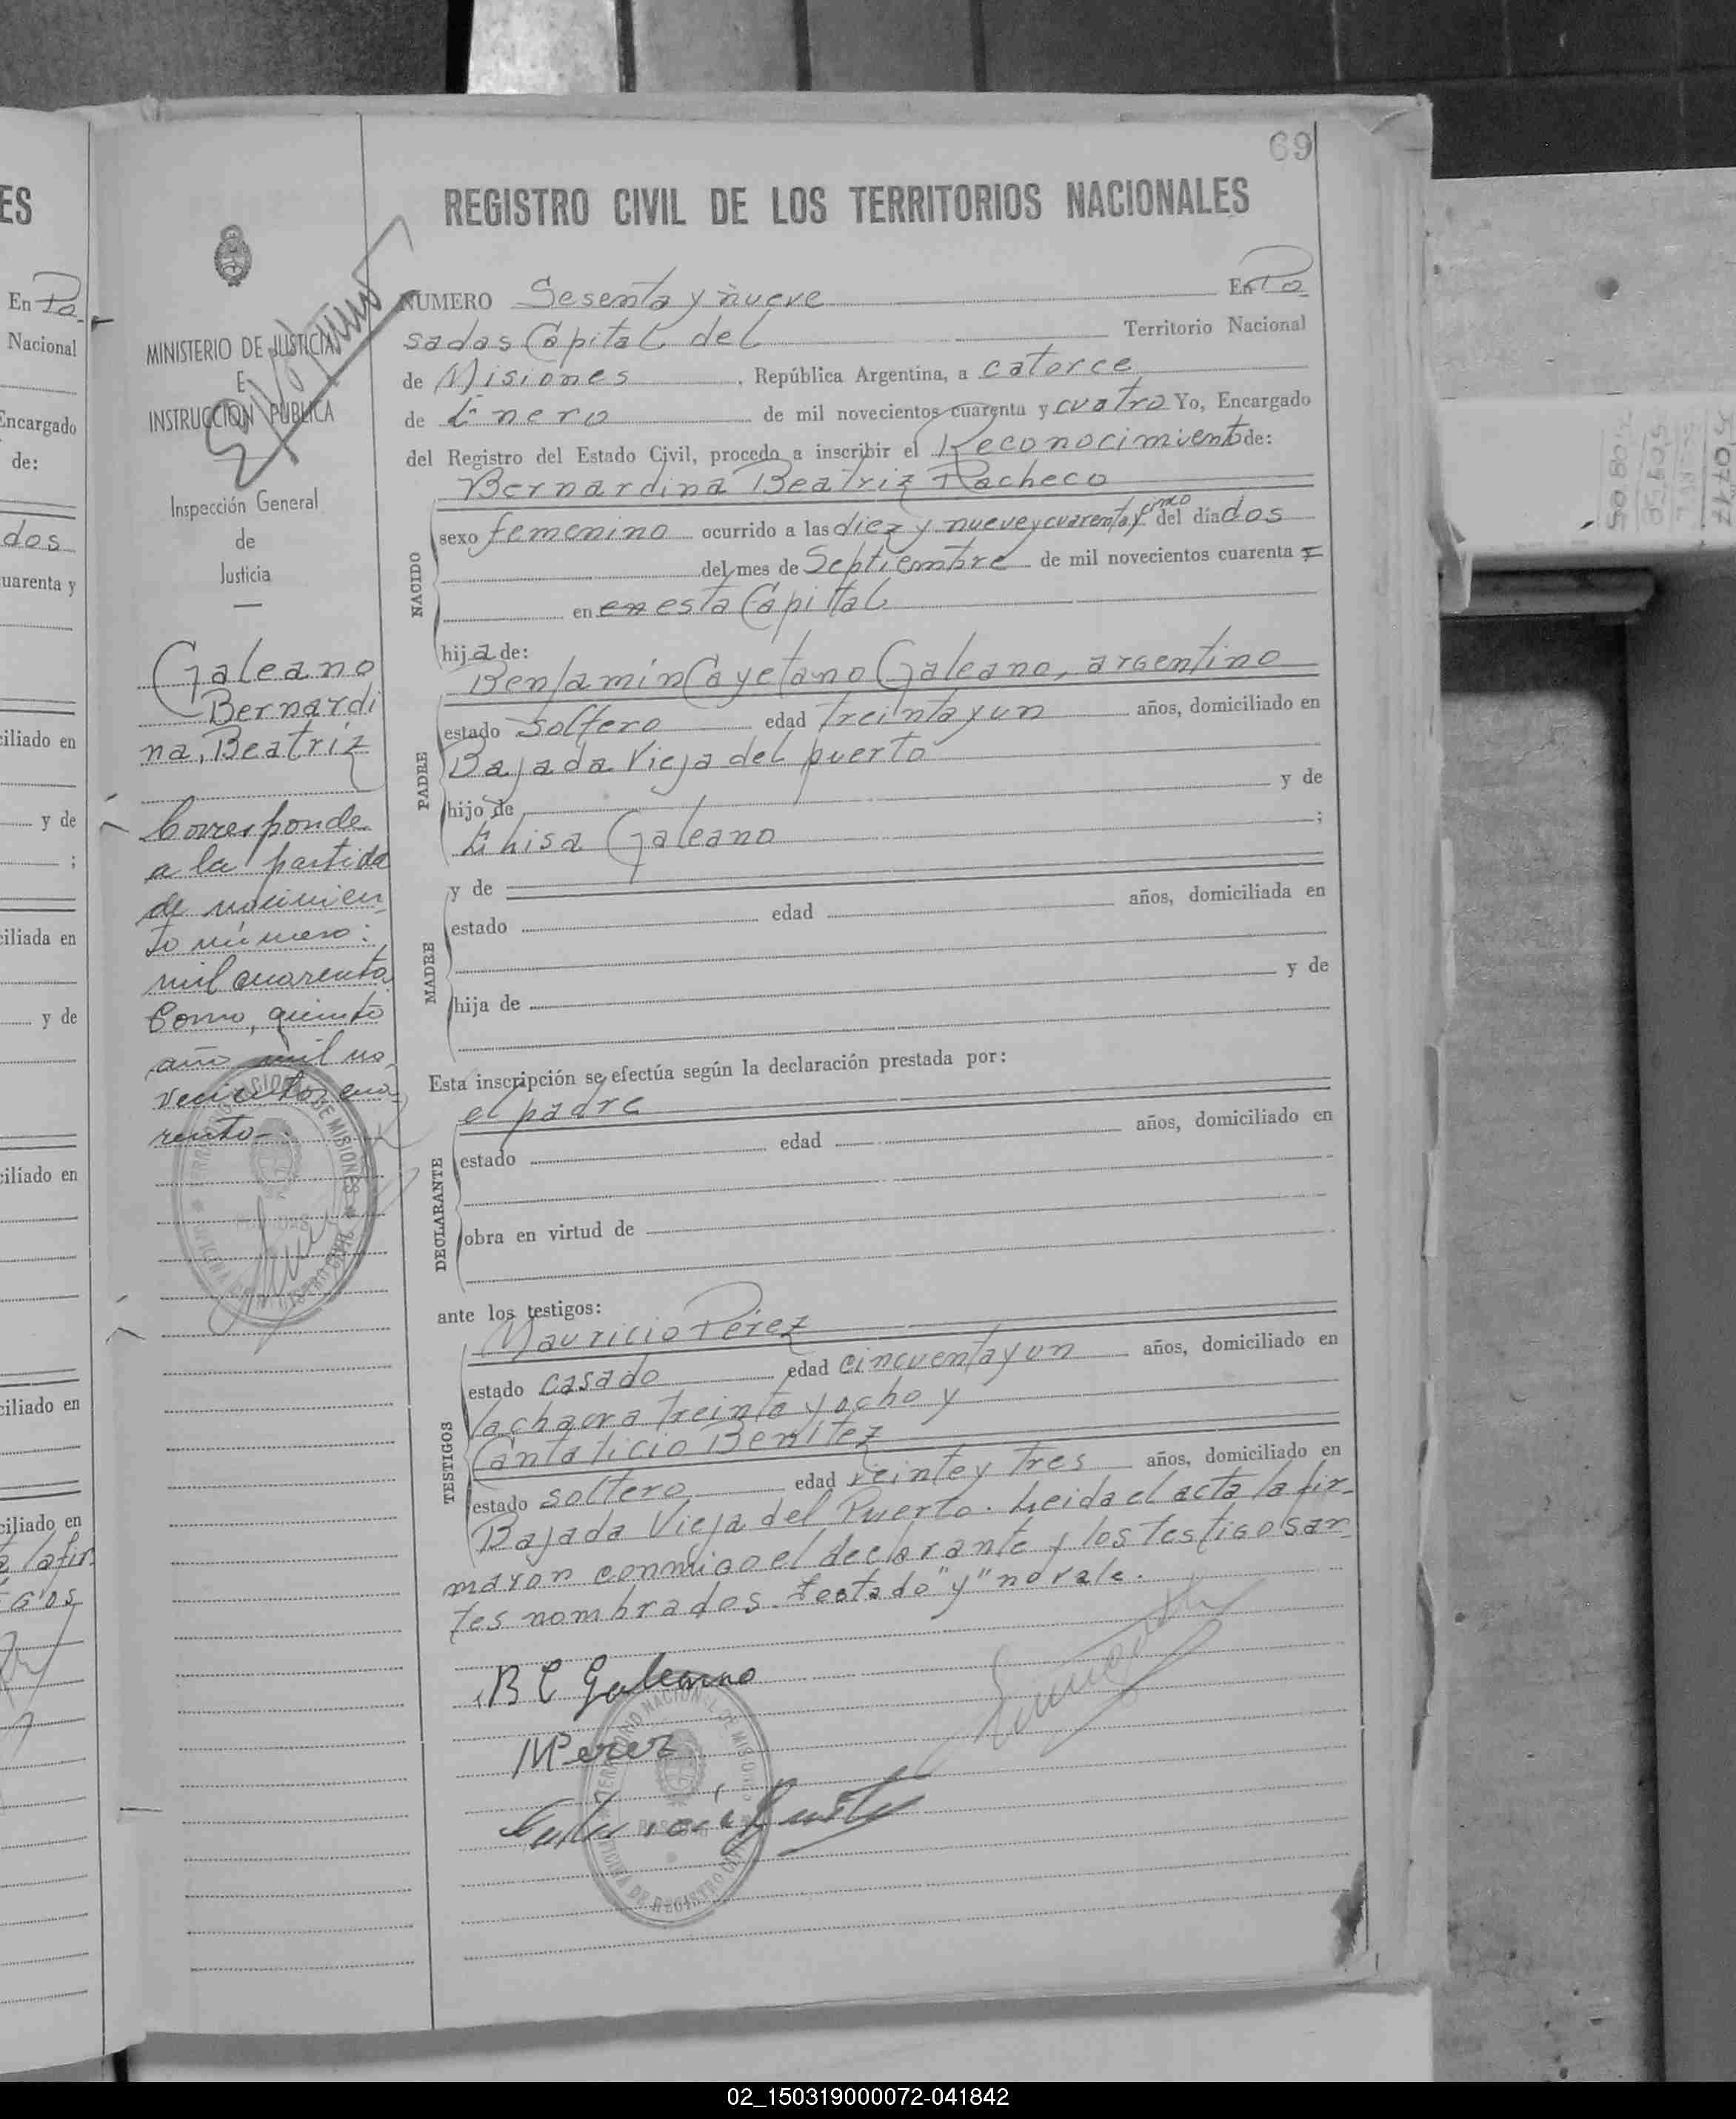 69
REGISTRO CIVIL DE LOS TERRITORIOS NACIONALES
NUMERO Sesenta y nueve En Po
sadas Capital del Territorio Nacional
de Misiones, República Argentina, a catorce
de Enero de mil novecientos cuarenta y cuatro Yo, Encargado
del Registro del Estado Civil, procedo a inscribir el Reconocimiento de:
Bernardina Beatriz Pacheco
NACIDO
sexo femenino ocurrido a las diez y nueve y cuarenta y cinco del día dos
del mes de Septiembre de mil novecientos cuarenta y
en en esta Capital
hija de:
Benjamin Cayetano Galeano, argentino
PADRE
estado soltero edad treinta y un años, domiciliado en
Bajada Vieja del puerto
hijo de y de
Elisa Galeano ;
MADRE
y de
estado edad años, domiciliada en
hija de y de
Esta inscripción se efectúa según la declaración prestada por:
el padre
DECLARANTE
estado edad años, domiciliado en
obra en virtud de
ante los testigos:
Mauricio Pérez
TESTIGOS
estado casado edad cincuenta y un años, domiciliado en
la chacra treinta y ocho y
Cantalicio Benitez
estado soltero edad veinte y tres años, domiciliado en
Bajada Vieja del Puerto. Leida el acta la fir-
maron conmigo el declarante y los testigos an-
tes nombrados. testado "y" no vale.
B C Galeano
M Perez
TERRITORIO NACIONAL DE MISIONES
POSADAS
OFICINA DE REGISTRO CIVIL
MINISTERIO DE JUSTICIA
E
INSTRUCCION PUBLICA
Inspección General
de
Justicia
Galeano
Bernardi
na, Beatriz
Corresponde
a la partida
de nacimien
to número:
mil cuarenta
Tomo, quinto
año mil no
vecientos cua-
renta-
TERRITORIO NACIONAL DE MISIONES
POSADAS
OFICINA DE REGISTRO CIVIL
ES
En Po
Nacional
Encargado
de:
dos
uarenta y
ciliado en
y de
;
ciliada en
y de
ciliado en
ciliado en
ciliado en
a la fir
02_150319000072-041842